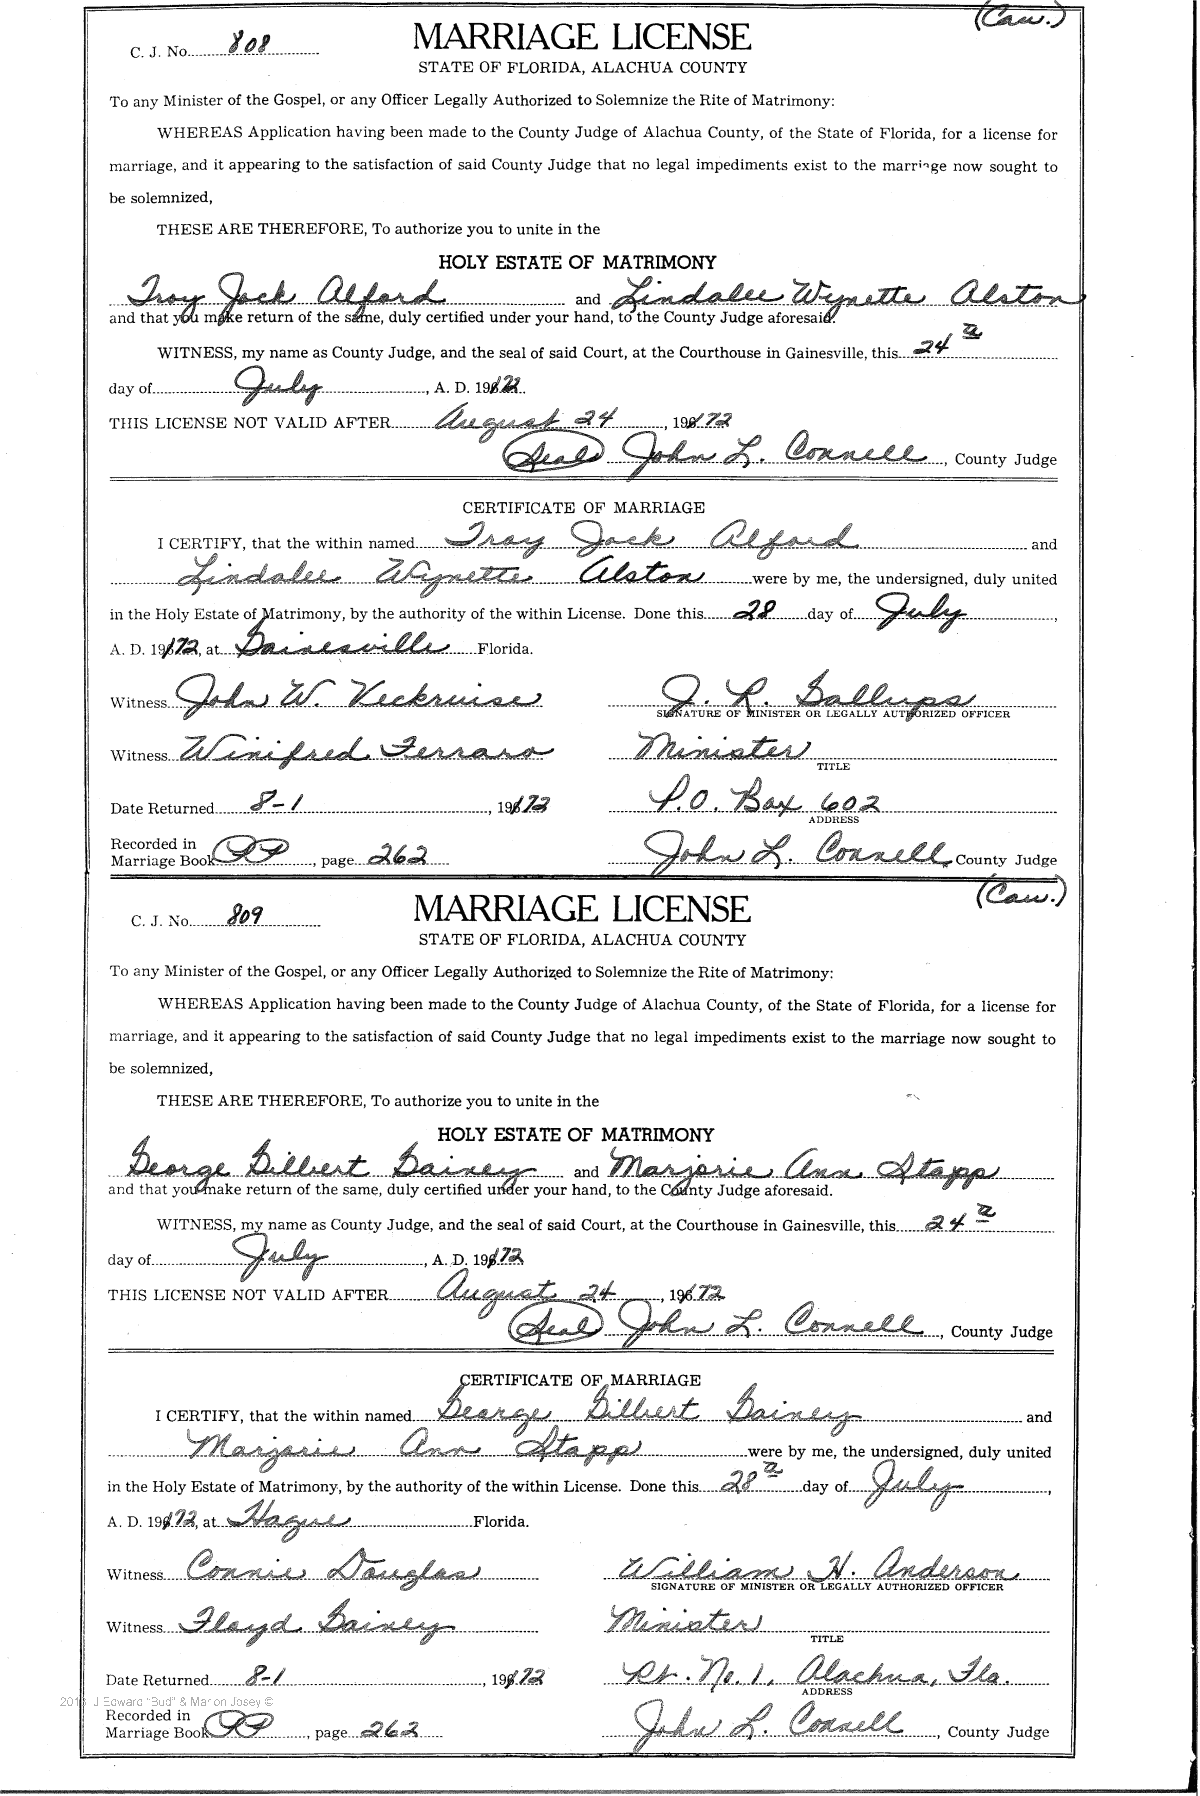 (Cau.)
C. J. No. 808
MARRIAGE LICENSE
STATE OF FLORIDA, ALACHUA COUNTY
To any Minister of the Gospel, or any Officer Legally Authorized to Solemnize the Rite of Matrimony:
WHEREAS Application having been made to the County Judge of Alachua County, of the State of Florida, for a license for
marriage, and it appearing to the satisfaction of said County Judge that no legal impediments exist to the marriage now sought to
be solemnized,
THESE ARE THEREFORE, To authorize you to unite in the
HOLY ESTATE OF MATRIMONY
Troy Jack Alford and Lindalee Wynette Alston
and that you make return of the same, duly certified under your hand, to the County Judge aforesaid.
WITNESS, my name as County Judge, and the seal of said Court, at the Courthouse in Gainesville, this 24
day of July, A. D. 1972
THIS LICENSE NOT VALID AFTER August 24, 1972
(Seal) John L. Connell, County Judge
CERTIFICATE OF MARRIAGE
I CERTIFY, that the within named Troy Jack Alford and
Lindalee Wynette Alston were by me, the undersigned, duly united
in the Holy Estate of Matrimony, by the authority of the within License. Done this 28 day of July,
A. D. 1972, at Gainesville Florida.
Witness John W. Veckruise J. R. Gallups
SIGNATURE OF MINISTER OR LEGALLY AUTHORIZED OFFICER
Witness Winifred Ferraro Minister
TITLE
Date Returned 8-1, 1972 P.O. Box 602
ADDRESS
Recorded in
Marriage Book PP, page 262 John L. Connell County Judge
(Cau.)
C. J. No. 809
MARRIAGE LICENSE
STATE OF FLORIDA, ALACHUA COUNTY
To any Minister of the Gospel, or any Officer Legally Authorized to Solemnize the Rite of Matrimony:
WHEREAS Application having been made to the County Judge of Alachua County, of the State of Florida, for a license for
marriage, and it appearing to the satisfaction of said County Judge that no legal impediments exist to the marriage now sought to
be solemnized,
THESE ARE THEREFORE, To authorize you to unite in the
HOLY ESTATE OF MATRIMONY
George Gilbert Gainey and Marjorie Ann Stapp
and that you make return of the same, duly certified under your hand, to the County Judge aforesaid.
WITNESS, my name as County Judge, and the seal of said Court, at the Courthouse in Gainesville, this 24
day of July, A. D. 1972
THIS LICENSE NOT VALID AFTER August 24, 1972
(Seal) John L. Connell, County Judge
CERTIFICATE OF MARRIAGE
I CERTIFY, that the within named George Gilbert Gainey and
Marjorie Ann Stapp were by me, the undersigned, duly united
in the Holy Estate of Matrimony, by the authority of the within License. Done this 28 day of July,
A. D. 1972, at Hague Florida.
Witness Connie Douglas William H. Anderson
SIGNATURE OF MINISTER OR LEGALLY AUTHORIZED OFFICER
Witness Floyd Gainey Minister
TITLE
Date Returned 8-1, 1972 Rt. No. 1, Alachua, Fla.
ADDRESS
J Edward "Bud" & Marion Josey ©
Recorded in
Marriage Book PP, page 262 John L. Connell, County Judge